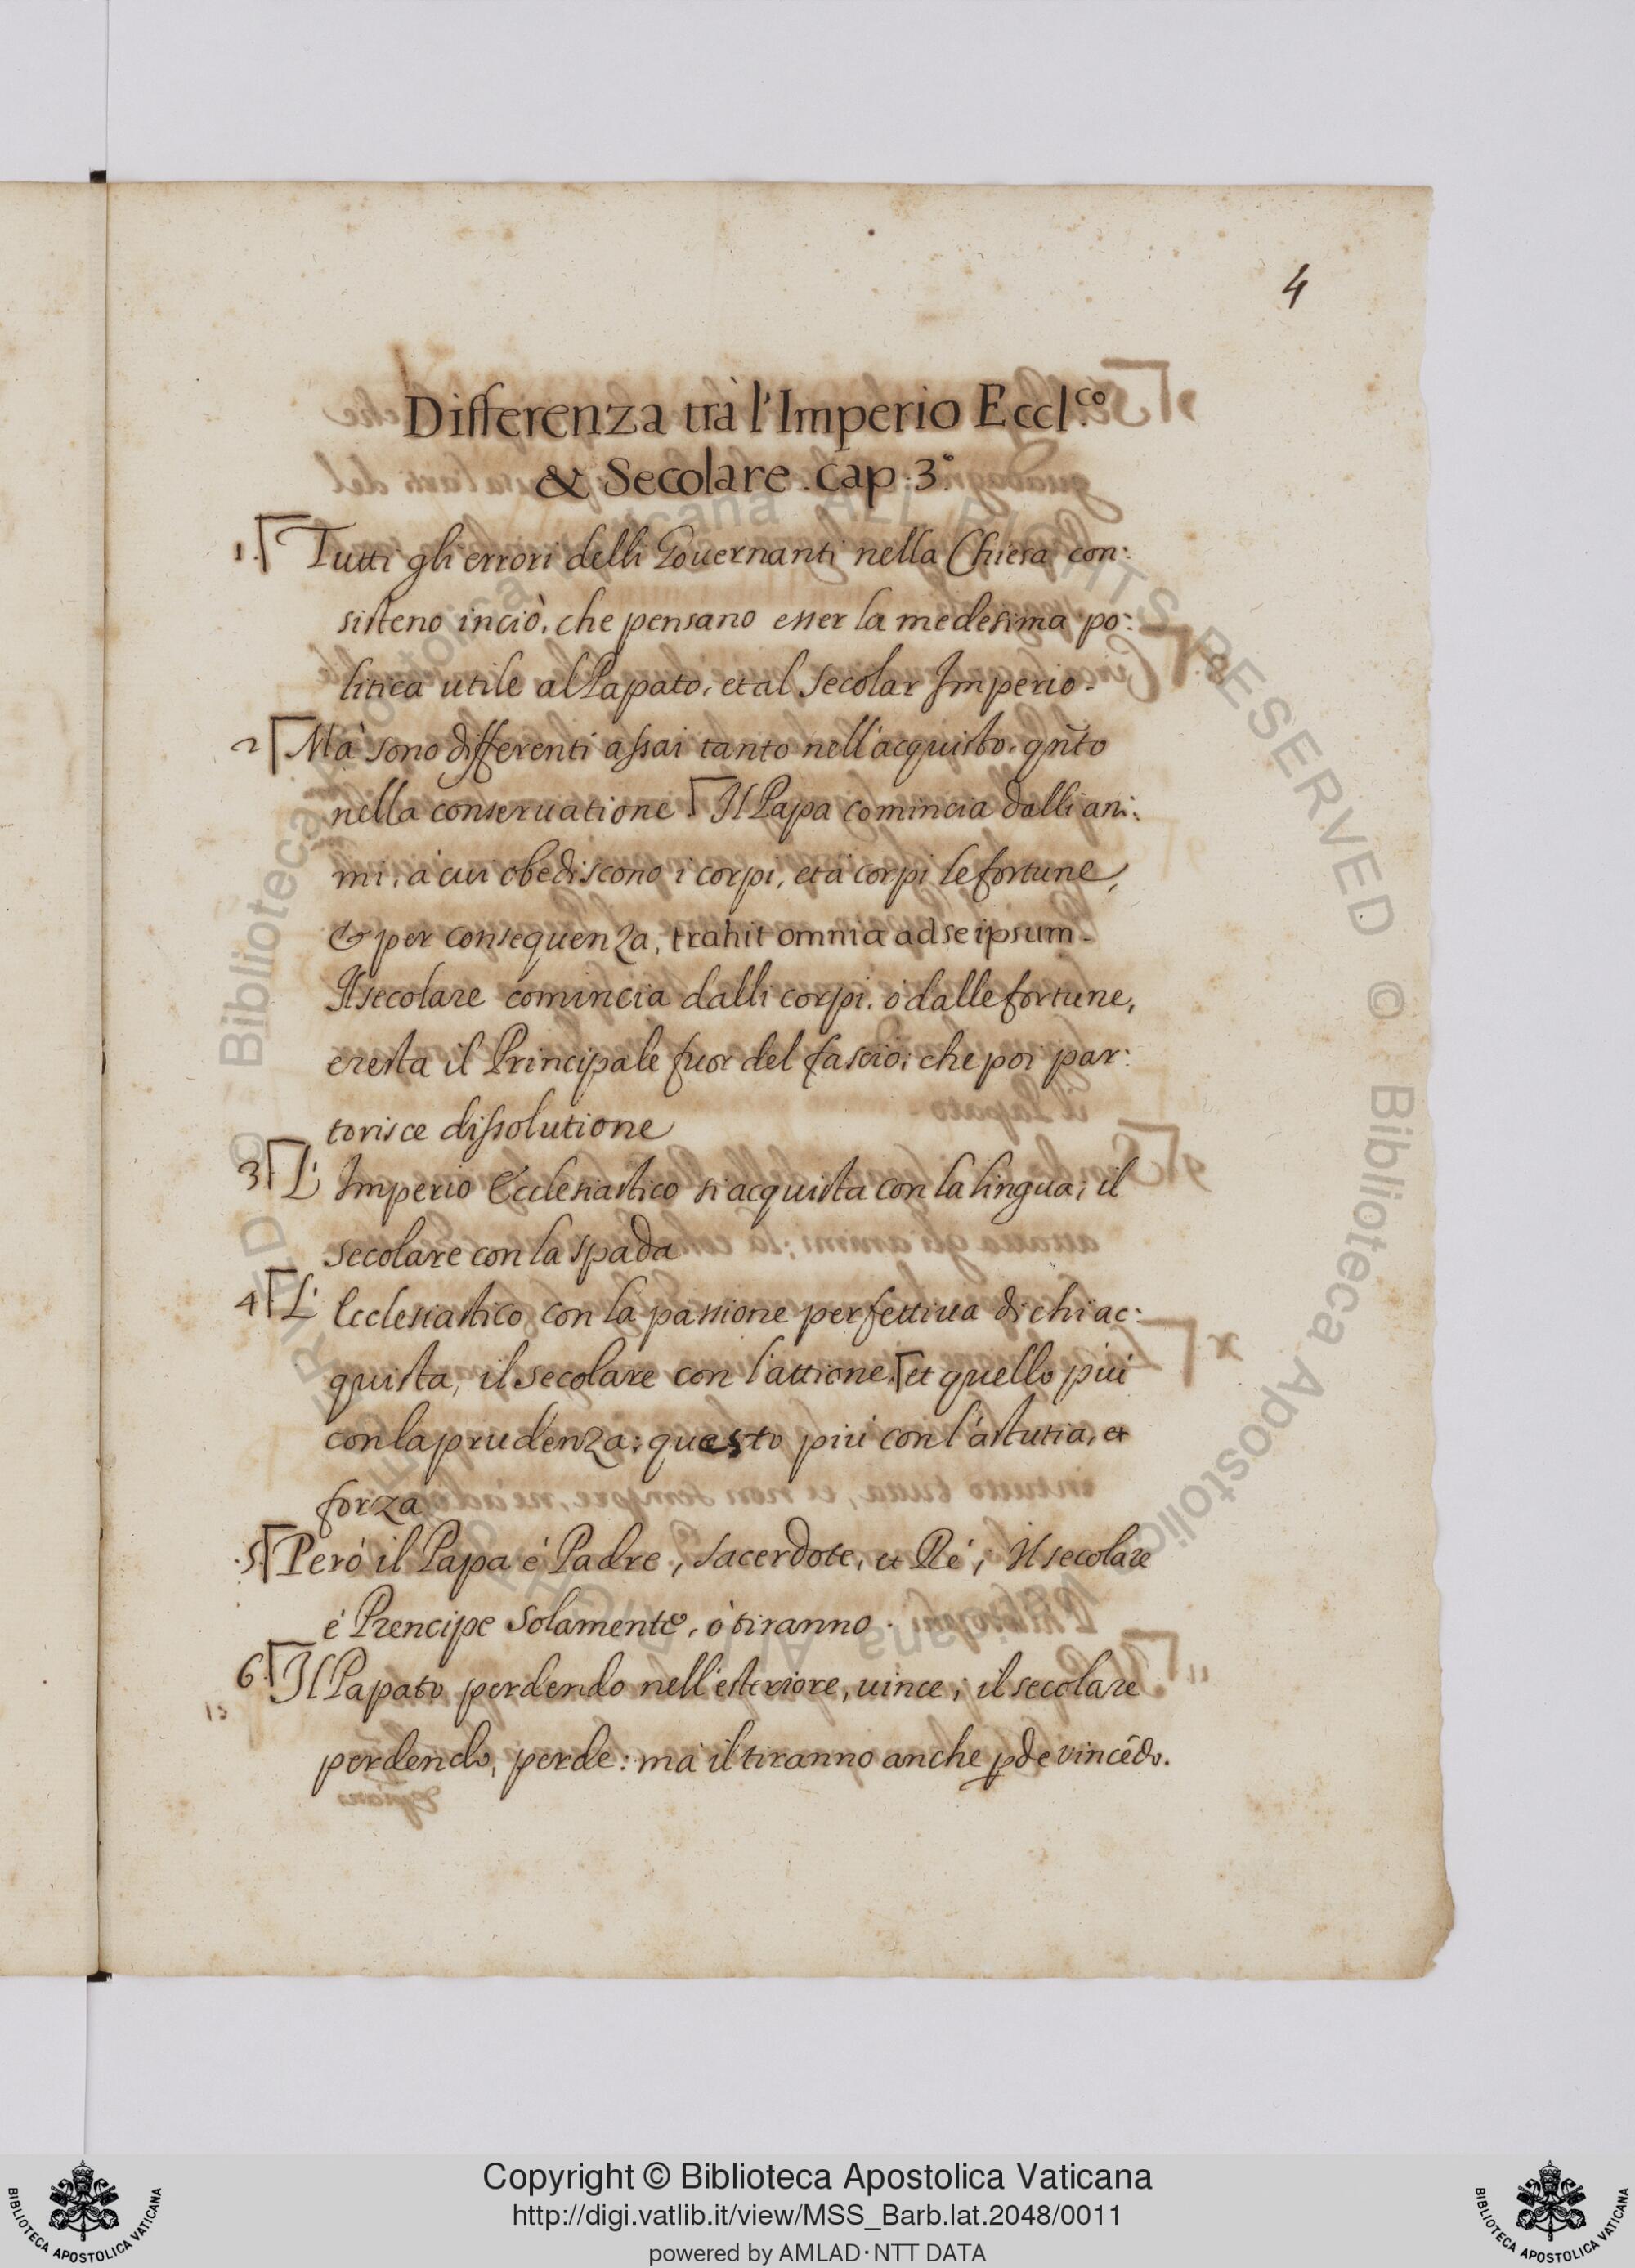 4
Differenza trà l'Imperio Eccl.co
& Secolare . cap. 3.°
1. Tutti gli errori delli Gouernanti nella Chiesa con:
sisteno inciò, che pensano esser la medesima po:
litica utile al Papato, et al secolar Imperio.
2 Mà sono differenti assai tanto nell'acquisto, qñto
nella conseruatione. Il Papa comincia dalli ani:
mi, à cui obediscono i corpi, et à corpi le fortune,
& per consequenza, trahit omnia ad se ipsum.
Il secolare comincia dalli corpi, ò dalle fortune,
e resta il Principale fuor del fascio; che poi par:
torisce dissolutione
3 L'Imperio Ecclesiastico si acquista con la lingua; il
secolare con la spada
4 L'Ecclesiastico con la passione perfettiua di chi ac:
quista, il secolare con l'attione. et quello più
con la prudenza; questo più con l'astutia, et
forza
.5. Però il Papa è Padre, sacerdote, et Rè; Il secolare
è Prencipe solamente, ò tiranno.
6. Il Papato perdendo nell'esteriore, uince; il secolare
perdendo, perde: mà il tiranno anche ꝑde vincẽdo.
Copyright © Biblioteca Apostolica Vaticana
http://digi.vatlib.it/view/MSS_Barb.lat.2048/0011
powered by AMLAD·NTT DATA
BIBLIOTECA APOSTOLICA VATICANA
BIBLIOTECA APOSTOLICA VATICANA